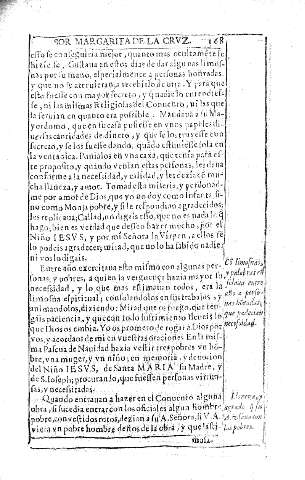 SOR MARGARITA DE LA CRVZ. 168
esso se conseguiria mejor, quanto mas ocultamẽte se
hiziesse. Gustaua en estos dias de dar algunas limos-
nas por su mano, especialmente a personas honradas,
y que no se atreuieran a recebirlo de otra. Y para que
esto fuesse con mayor secreto, y que
se, ni las mismas Religiosas del Conuento, ni las que
la seruian en quanto era possible. Mandaua a su Ma-
yordomo, que en su casa pusiesse en vnos papeles di-
uersas cantidades de dinero, y que se los truxesse con
secreto, y se los fuesse dando, quãdo estuuiesse sola en
la ventanica. Ponialos en vna caxa, que tenia para es-
te proposito, y quando venian estas personas, les daua
conforme a la necessidad, y calidad, y les dezia con mu-
cha llaneza, y amor. Tomad esta miseria, y perdonad-
me por amor de Dios, que yo no doy como Infanta, si-
no como Monja pobre, y si le respondian agradecidos,
les replicaua, Callad, no digais esso, que no es nada lo q̃
hago, bien es verdad que desseo hazer mucho, por el
Niño IESVS, y por mi Señora la Virgen, a ellos se
lo podeis agradecer; mirad, que no lo ha sabido nadie,
ni vos lo digais.
Entre año exercitaua esto mismo con algunas per-
sonas, y pobres, a quien la verguença hazia mayor su
necessidad, y lo que mas estimauan todos, era la
limosna espiritual; consolandolos en sus trabajos, y
animandolos, diziendo: Mirad que os ruego, que ten-
gais paciencia, y que con todo sufrimiento lleueis lo
que Dios os embia. Yo os prometo de rogar a Dios por
vos, y acordaos de mi en vuestras oraciones. En la mis-
ma Pascua de Nauidad hazia vestir tres pobres vn hom-
bre, vna muger, y vn niño, en memoria, y deuocion
del Niño IESVS, de Santa MARIA su Madre, y
de S. Ioseph; procurando, que fuessen personas virtuo-
sas, y necessitadas.
Quando entrauan a hazer en el Conuento alguna
obra, si sucedia entrar con los oficiales algun hombre
pobre, con vestidos rotos, dezian a su A. Señora, si V. A.
viera vn pobre hombre peones de la obra, y que lasti-
mosa
necessidad.
los pobres.